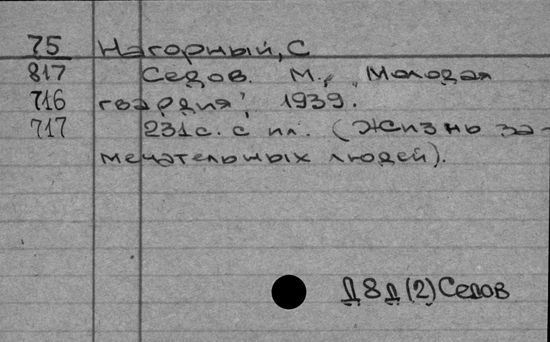 75 Нагорный, С
817 Седов. М., „Молодая
716 гвардия", 1939.
717 231с. с ил. (Жизнь за-
мечательных людей).
Д8д(2)Седов